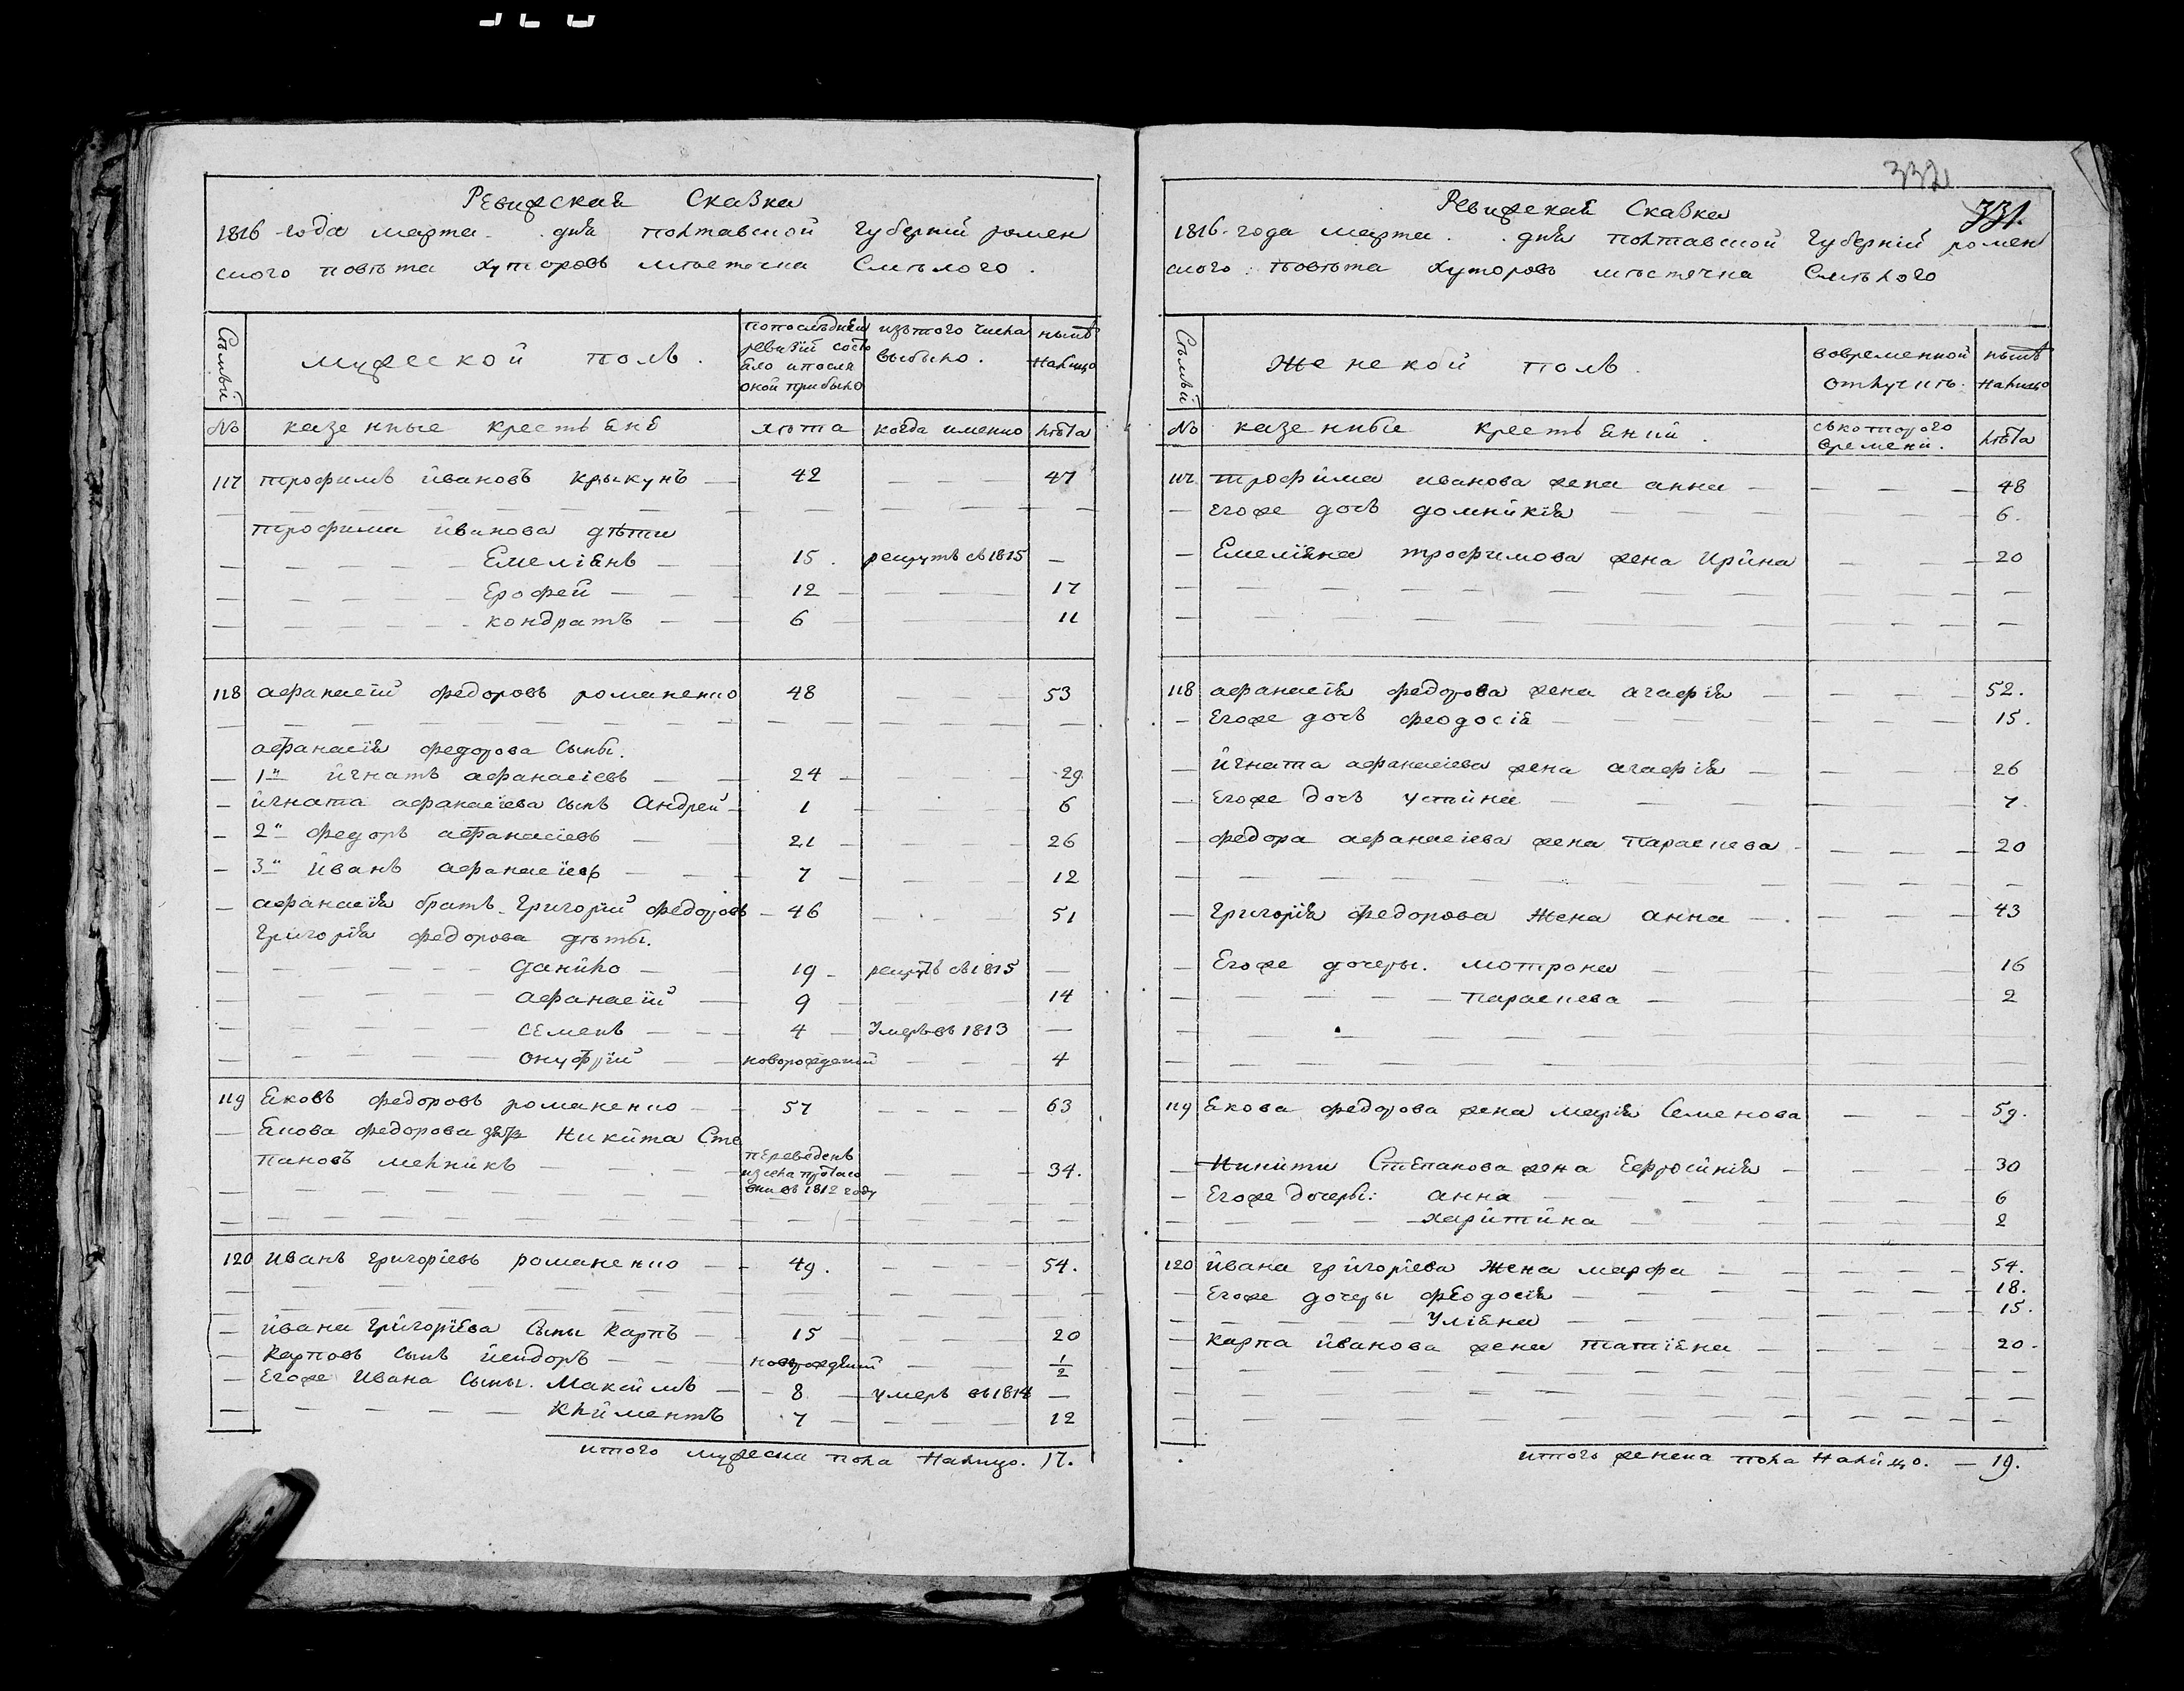 Ревизская Сказка
1816 года марта . . дня полтавской губерній ромен
ского повѣта хуторовъ мѣстечка Смѣлого .
Сѣмьи
мужеской полъ .
попослѣдней
ревизій состо
яло ипосля
оной прибыло
изтого числа
выбыло .
нынѣ
налицо
No казенные крестьяне лѣта когда именно лѣта
117 трофимъ ивановъ крыкунъ 42 47
трофима иванова дѣти
Емеліянъ 15 . рекрутъ въ 1815
Ерофей 12 17
кондратъ 6 11
118 афанасій федоровъ романенко 48 53
афанасія федорова Сыны .
1й игнатъ афанасіевъ 24 29
игната афанасіева сынъ Андрей 1 6
2й федоръ афанасіевъ 21 26
3й иванъ афанасіевъ 7 12
афанасія братъ григорій федоровъ 46 51
григорія федорова дѣты .
данило 19 рекрутъ въ 1815
афанасій 9 14
семенъ 4 Умеръ въ 1813
онуфрій новорожденій 4
119 яковъ федоровъ романенко 57 63
якова федорова зять Никита Сте
пановъ мелникъ 34 .
переведенъ
въ 1812 году
120 иванъ григоріевъ романенко 49 . 54 .
ивана григоріева сыны карпъ 15 20
карповъ сынъ исидоръ новорожденій 1/2
Егоже ивана сыны . Максимъ 8 умеръ въ 1814
климентъ 7 12
итого мужеска пола налицо . 17 .
332
331 .
Ревизская Сказка
1816 . года марта . . дня полтавской губерній ромен
ского повѣта хуторовъ мѣстечка Смѣлого
Сѣмьи
женской полъ .
вовременной
отлучкѣ .
нынѣ
налицо
No казенныи крестьянки .
съкоторого
времени .
лѣта
117 . трофима иванова жена анна 48
егоже дочь домникія 6 .
Емеліяна трофимова жена Ирина 20
118 афанасія федорова жена агафія 52 .
Егоже дочь феодосія 15 .
игната афанасіева жена агафія 26
Егоже дочь устина 7 .
федора афанасіева жена параскева 20
григорія федорова жена анна 43
Егоже дочеры . мотрона 16
параскева 2
119 якова федорова жена марія Семенова 59 .
Никити Степанова жена Ефросинія 30
Егоже дочеры : анна 6
харитина 2
120 ивана григоріева жена марфа 54 .
Егоже дочеры феодосія 18 .
Уліяна 15 .
карпа иванова жена татіяна 20 .
итого женска пола налицо . 19 .